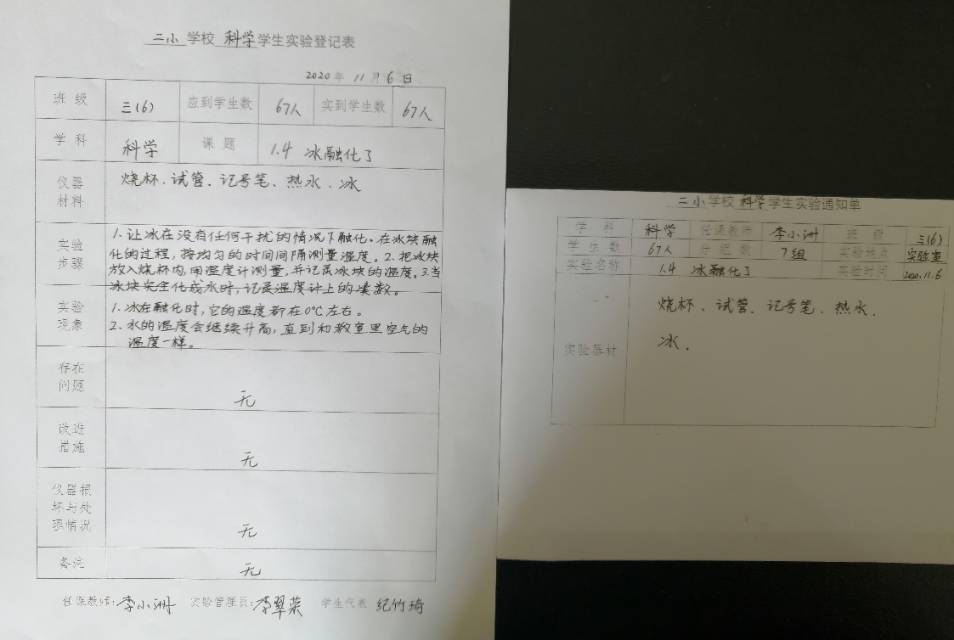 二小 学校 科学 学生实验登记表
2020 年 11 月 6 日
班 级 三(6) 应到学生数 67人 实到学生数 67人
学 科 科学 课 题 1.4 冰融化了
仪器
材料
烧杯、试管、记号笔、热水、冰
实验
步骤
1.让冰在没有任何干扰的情况下融化。在冰块融
化的过程,按均匀的时间间隔测量温度。2.把冰块
放入烧杯内,用温度计测量,并记录冰块的温度。3.当
冰块完全化成水时,记录温度计上的读数。
实验
现象
1.冰在融化时,它的温度都在0℃左右。
2.水的温度会继续升高,直到和教室里空气的
温度一样。
存在
问题
无
改进
措施
无
仪器损
坏与处
理情况
无
备注
无
任课教师:李小洲 实验管理员:李翠荣 学生代表 纪竹琦
二小 学校 科学 学生实验通知单
学 科 科学 任课教师 李小洲 班 级 三(6)
学 生 数 67人 分 组 数 7组 实验地点 实验室
实验名称 1.4 冰融化了 实验时间 2020.11.6
实验器材
烧杯、试管、记号笔、热水、
冰.